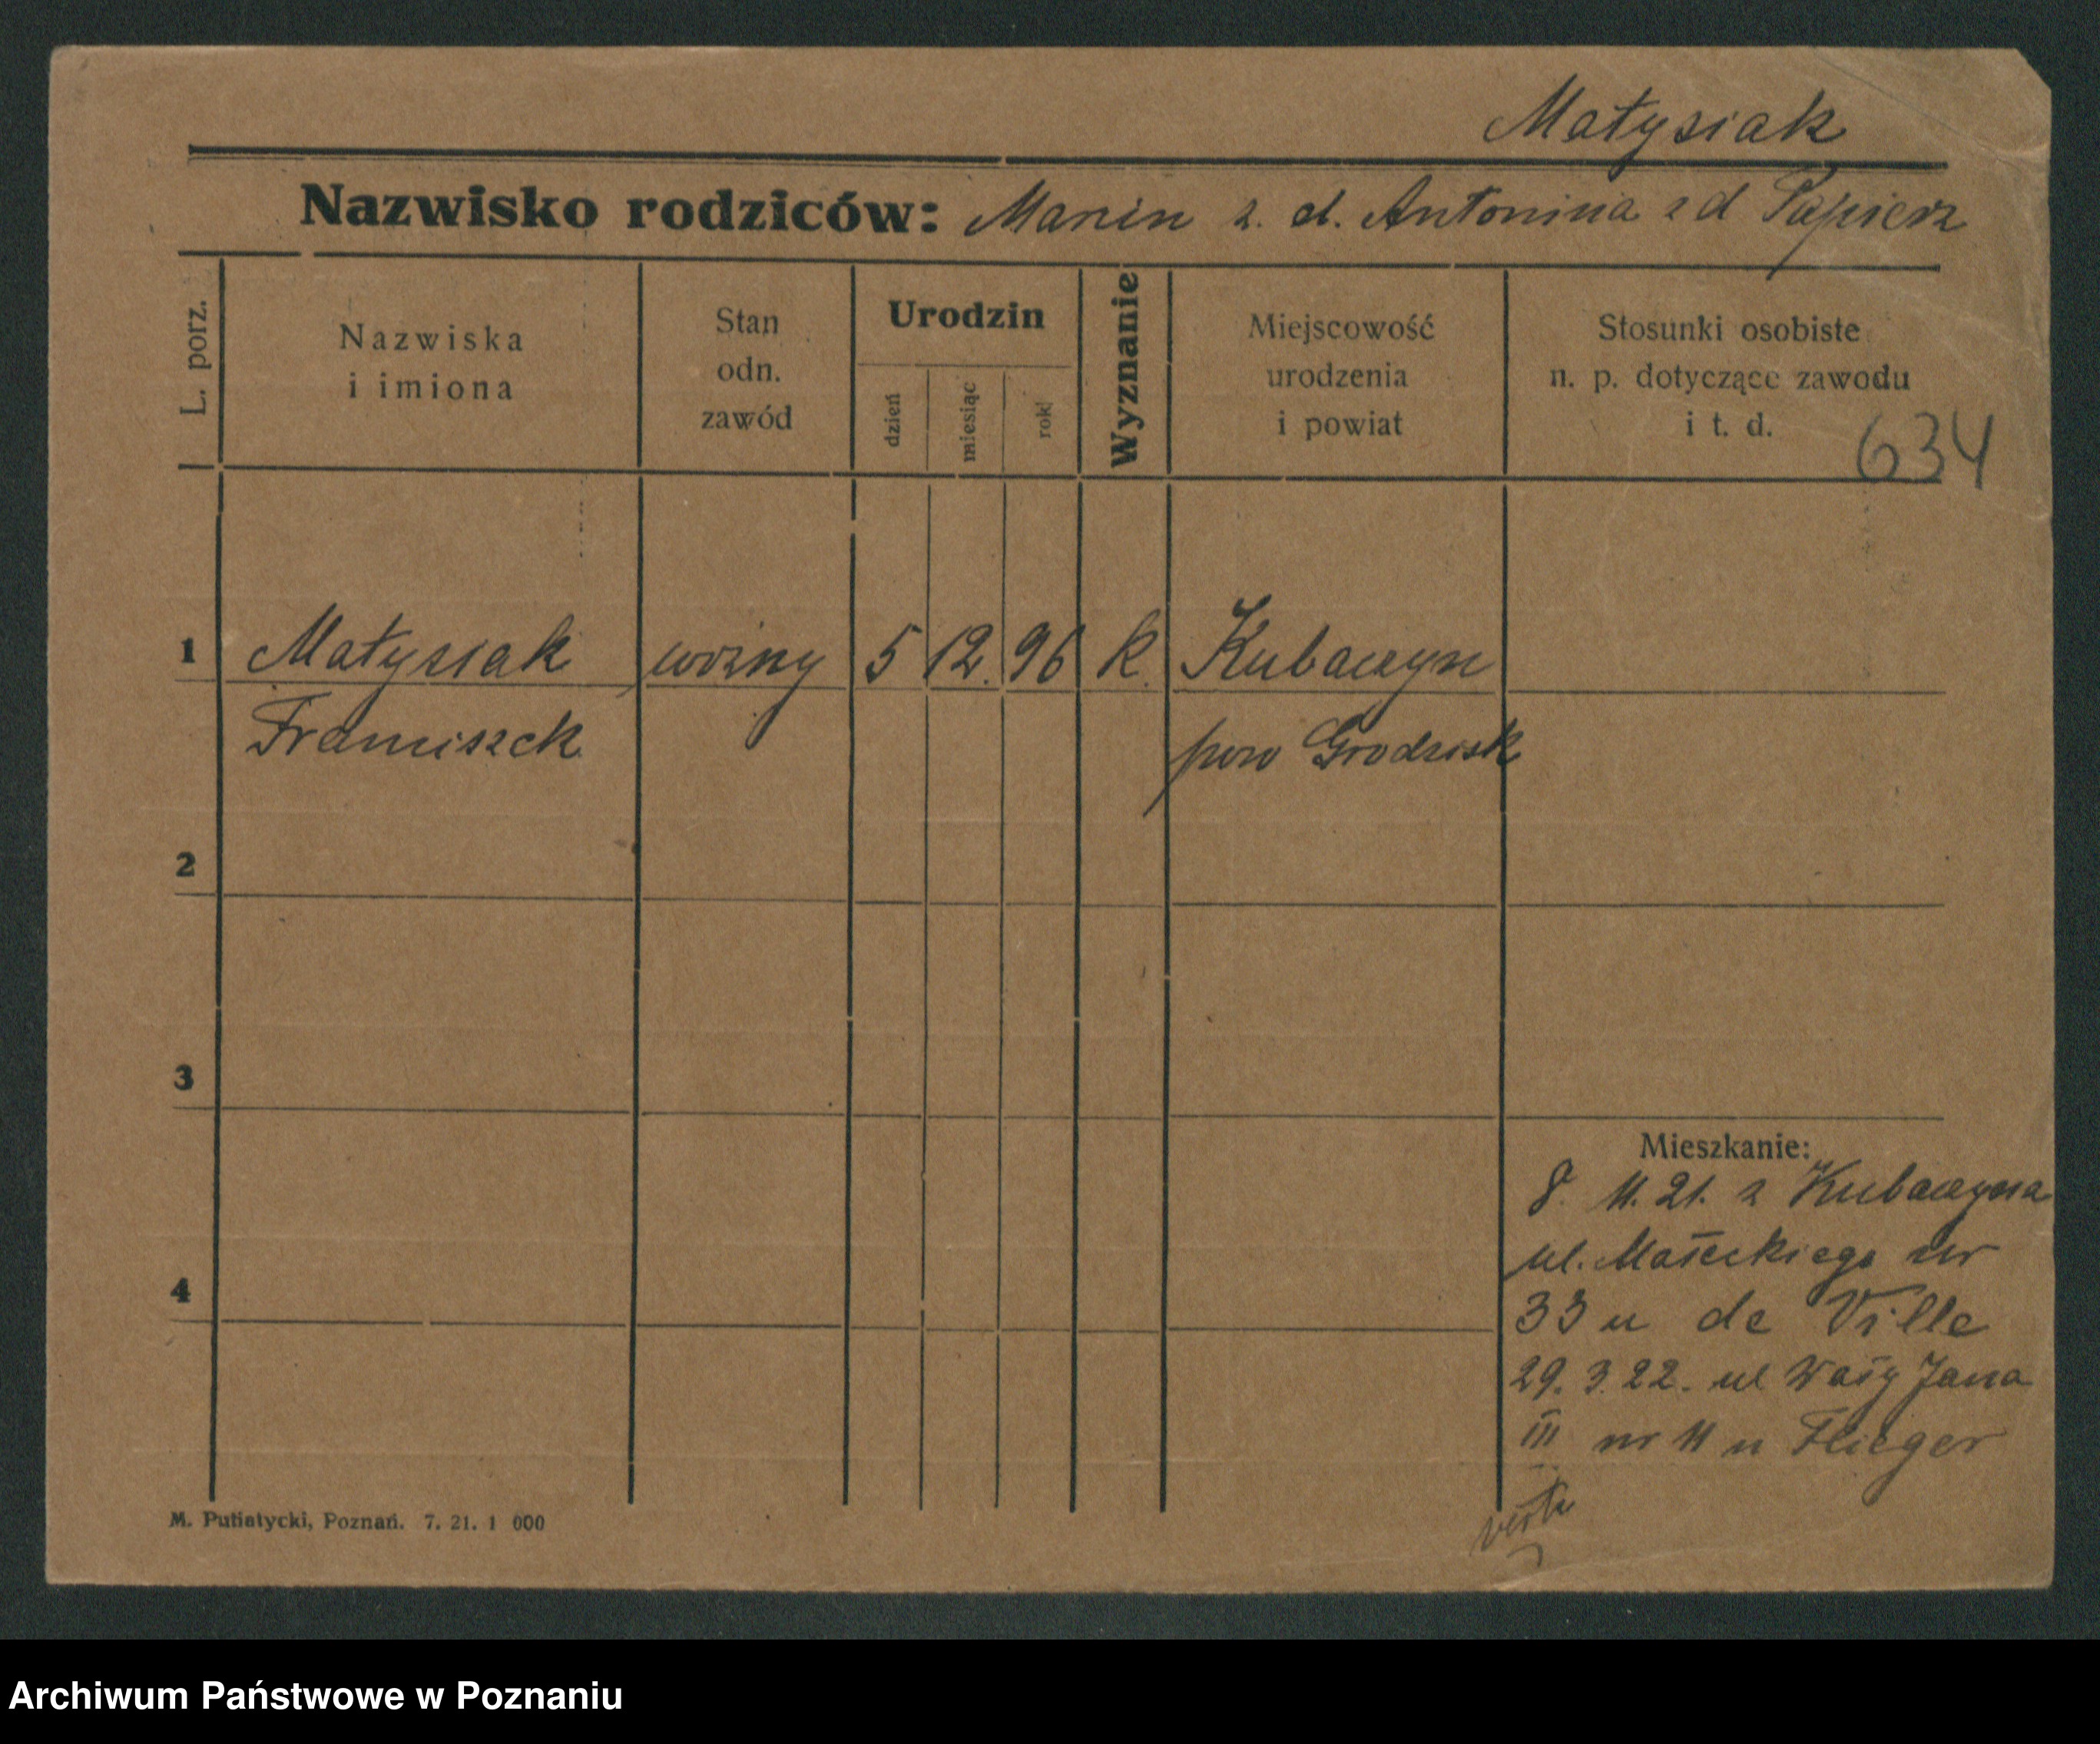 Matysiak
Nazwisko rodziców: Marcin z. d. Antonina z d Papierz
L. porz.
Nazwiska
i imiona
Stan
odn.
zawód
Urodzin
dzień
miesiąc
rok
Wyznanie
Miejscowość
urodzenia
i powiat
Stosunki osobiste
n. p. dotyczące zawodu
i t. d.
634
1 Matysiak woźny 5 12. 96 k. Kubaczyn
Franciszek pow Grodzisk
2
3
4
Mieszkanie:
8. 11. 21. z Kubaczyna
ul. Małeckiego nr
33 u de Ville
29. 3. 22. ul Wały Jana
III nr 11 u Flieger
verte
M. Putiatycki, Poznań. 7. 21. 1 000
Archiwum Państwowe w Poznaniu